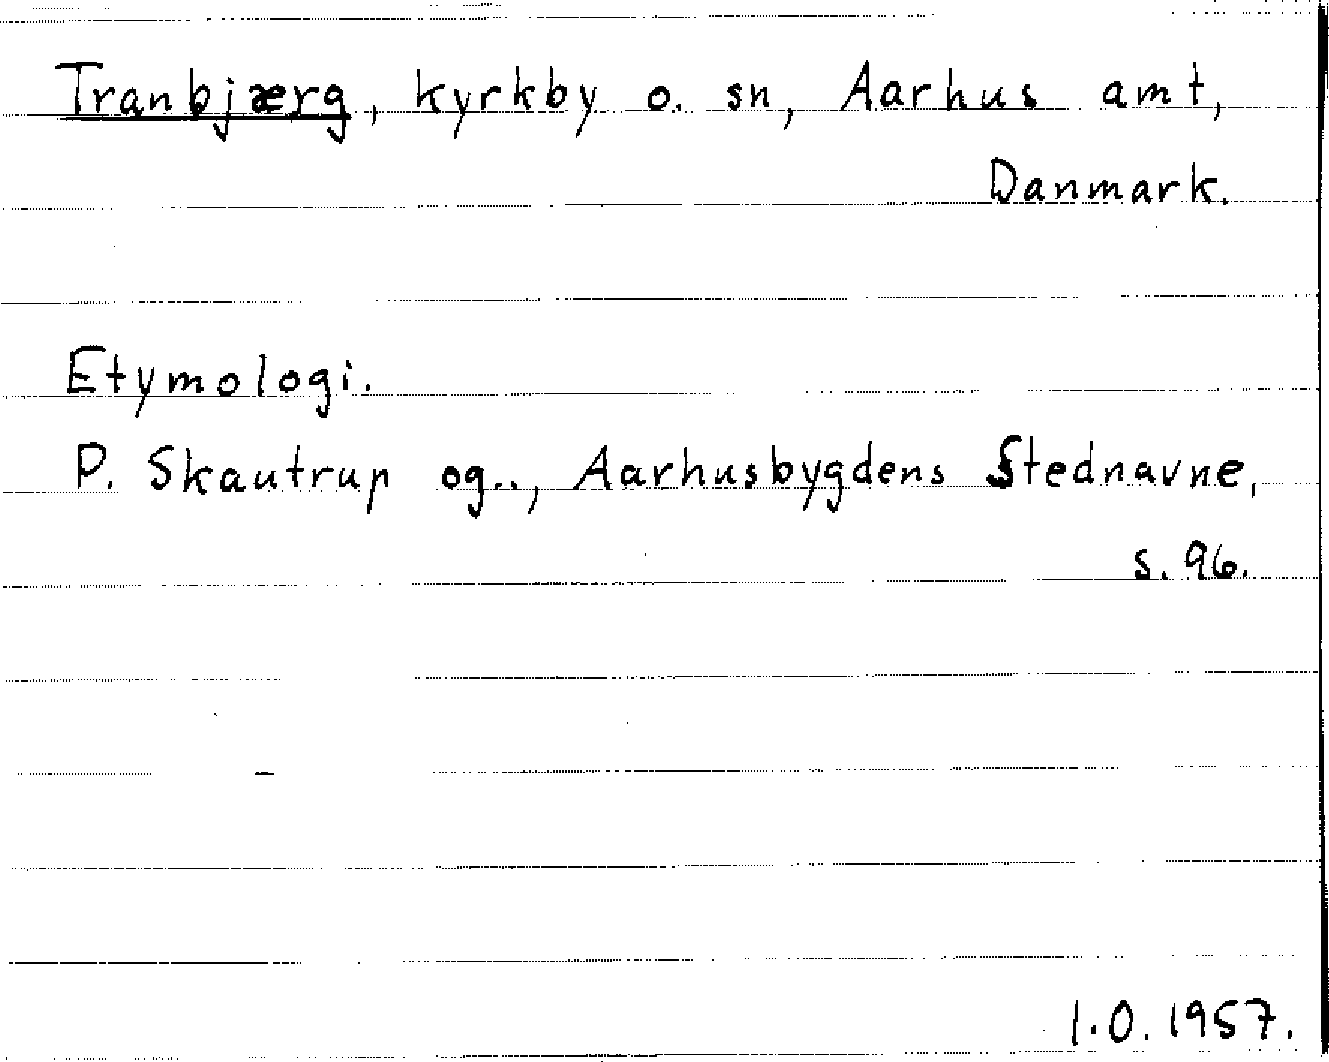 Tranbjærg, kyrkby o. sn, Aarhus amt,
Danmark.
Etymologi.
P. Skautrup og.., Aarhusbygdens Stednavne,
s. 96.
I.O. 1957.